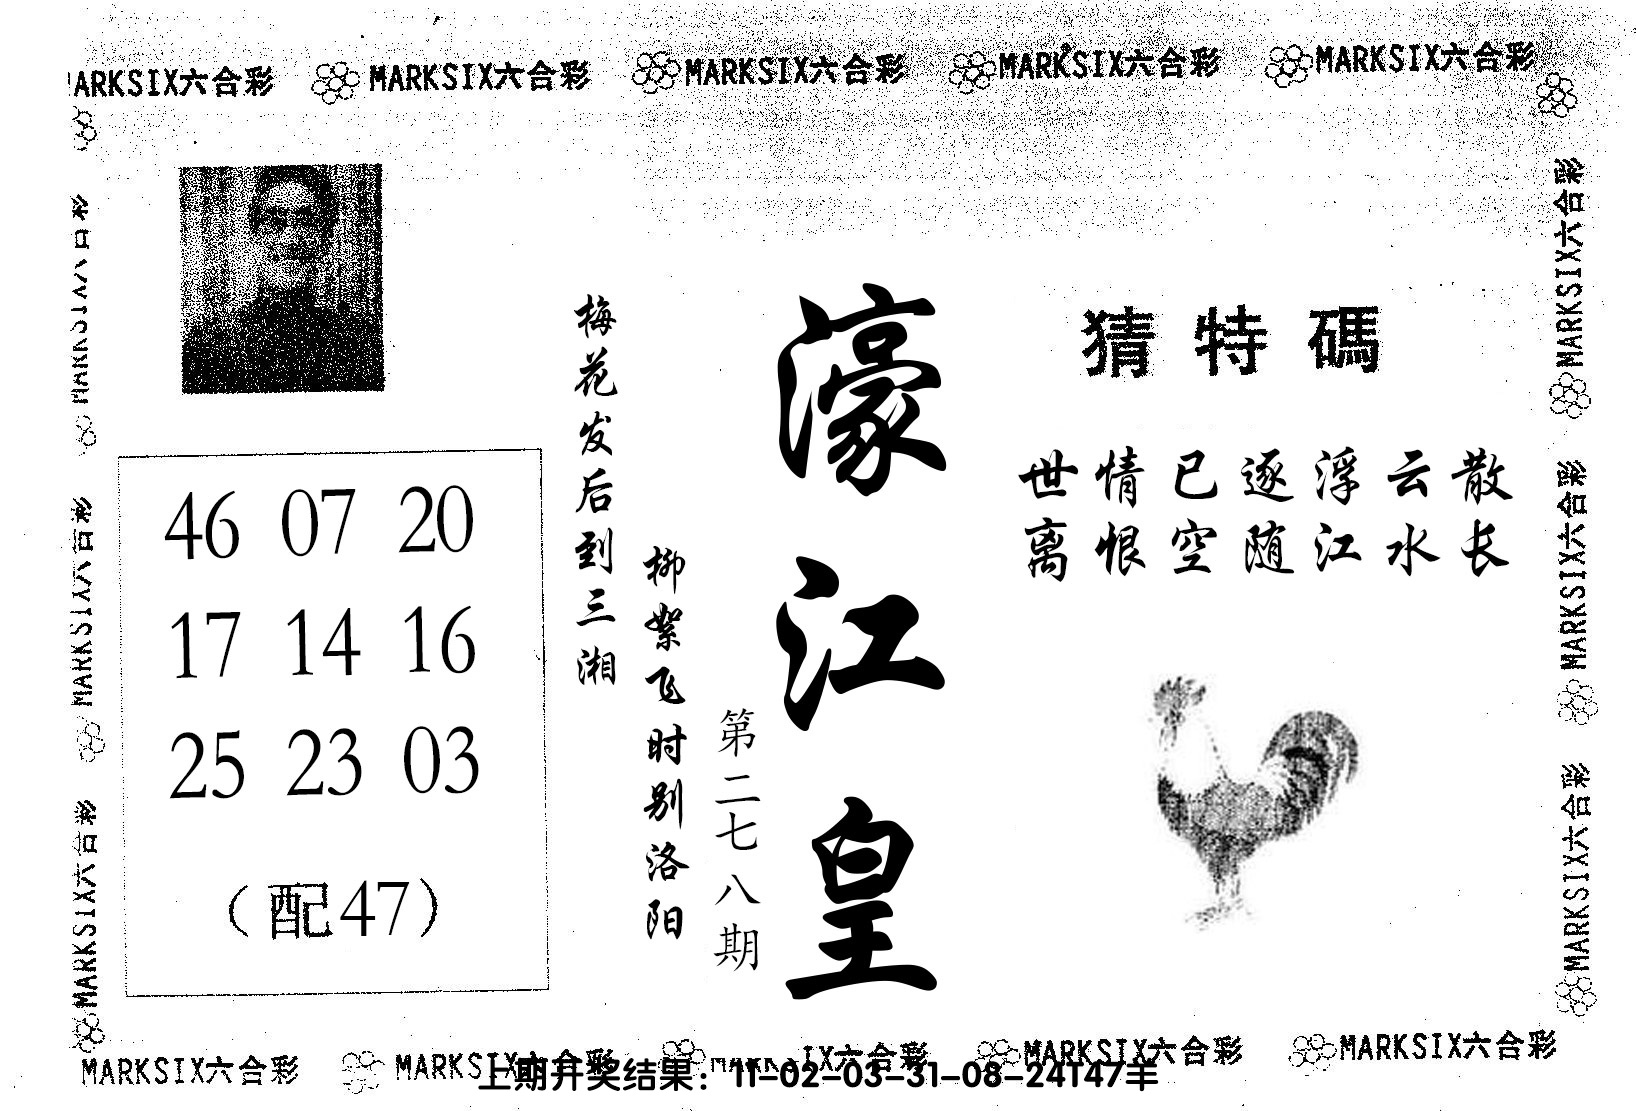 MARKSIX六合彩 MARKSIX六合彩 MARKSIX六合彩 MARKSIX六合彩
MARKSIX六合彩
MARKSIX六合彩
MARKSIX六合彩
MARKSIX六合彩
MARKSIX六合彩
46 07 20
17 14 16
25 23 03
（配47）
梅花发后到三湘
柳絮飞时别洛阳
第二七八期
濠江皇
猜特碼
世情已逐浮云散
离恨空随江水长
MARKSIX六合彩 MARKSIX六合彩 MARKSIX六合彩 MARKSIX六合彩
上期开奖结果：11-02-03-31-08-24T47羊